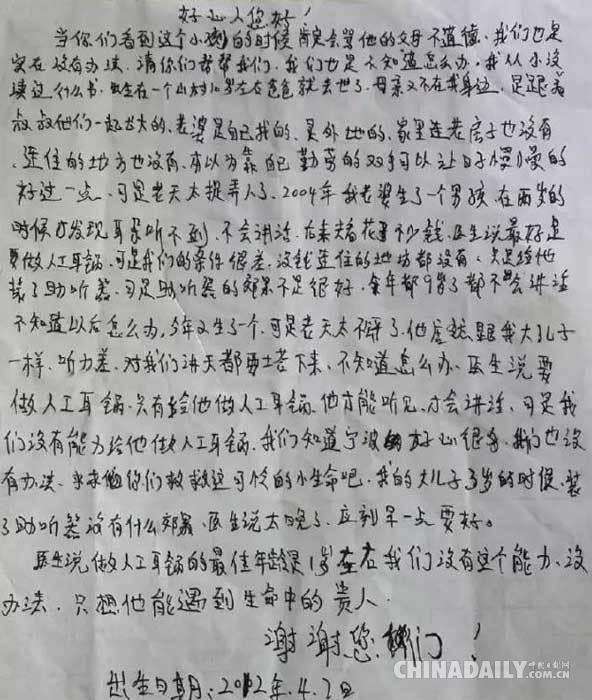 好心人您好!
当你们看到这个小孩的时候肯定会骂他的父母不道德,我们也是
实在没有办法.请你们帮帮我们,我们也是不知道怎么办,我从小没
读过什么书.出生在一个山村10岁左右爸爸就去世了.母亲又不在我身边,是跟着
叔叔他们一起长大的,老婆是自己找的,是外地的,家里连老房子也没有
、连住的地方也没有,本以为靠自己勤劳的双手可以让日子慢慢的
好过一点,可是老天太捉弄人了,2004年我老婆生了一个男孩,在两岁的
时候才发现耳朵听不到,不会讲话,后来为了花了不少钱,医生说最好是
要做人工耳蜗,可是我们的条件很差,没钱连住的地方都没有,只是给他
装了助听器,可是助听器的效果不是很好,今年都9岁了都不会讲话
不知道以后怎么办,今年又生了一个,可是老天太不公平了,他居然跟我大儿子
一样,听力差,对我们讲天都要塌下来,不知道怎么办,医生说要
做人工耳蜗,只有给他做人工耳蜗,他才能听见,才会讲话,可是我
们没有能力给他做人工耳蜗,我们知道宁波的好心很多,我们也没
有办法,求求你们救救这可怜的小生命吧,我的大儿子3岁的时候,装
了助听器没有什么效果,医生说太晚了,应到早一点要好。
医生说,做人工耳蜗的最佳年龄是1岁左右我们没有这个能力,没
办法,只想他能遇到生命中的贵人
谢谢您们!
出生日期:2012年.4.2日
CHINADAILY 中国日报网
.com.cn